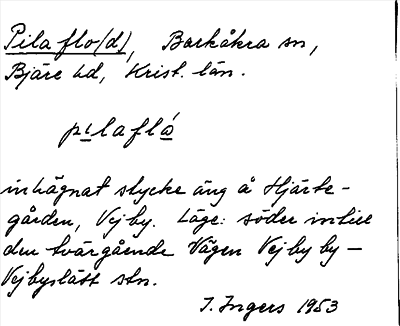 Pila flo(d), Barkåkra sn,
Bjäre hd, Krist. län.
pilaflå
inhägnat stycke äng å Hjärte-
gården, Vejby. Läge: söder intill
den tvärgående vägen Vejby by –
Vejbyslätt stn.
I. Ingers 1953